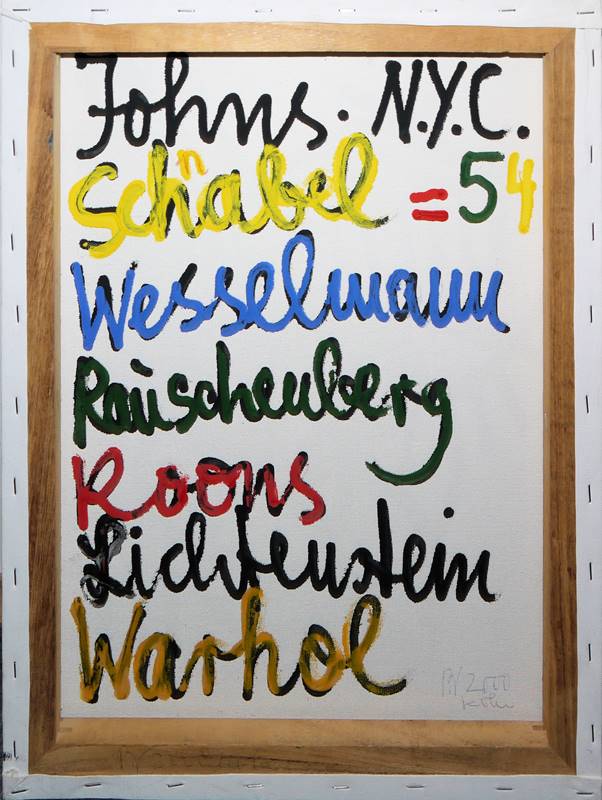 Johns. N.Y.C.
Schnabel = 54
Wesselmann
Rauschenberg
Koons
Lichtenstein
Warhol
2000
Köln